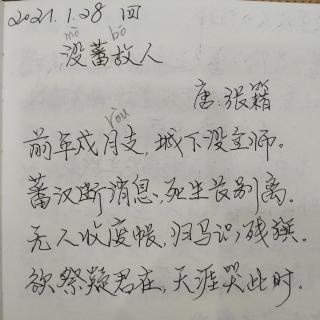 2021.1.28 四
mò bō
没蕃故人
唐·张籍
ròu
前年戍月支,城下没全师。
蕃汉断消息,死生长别离。
无人收废帐,归马识残旗。
欲祭疑君在,天涯哭此时。